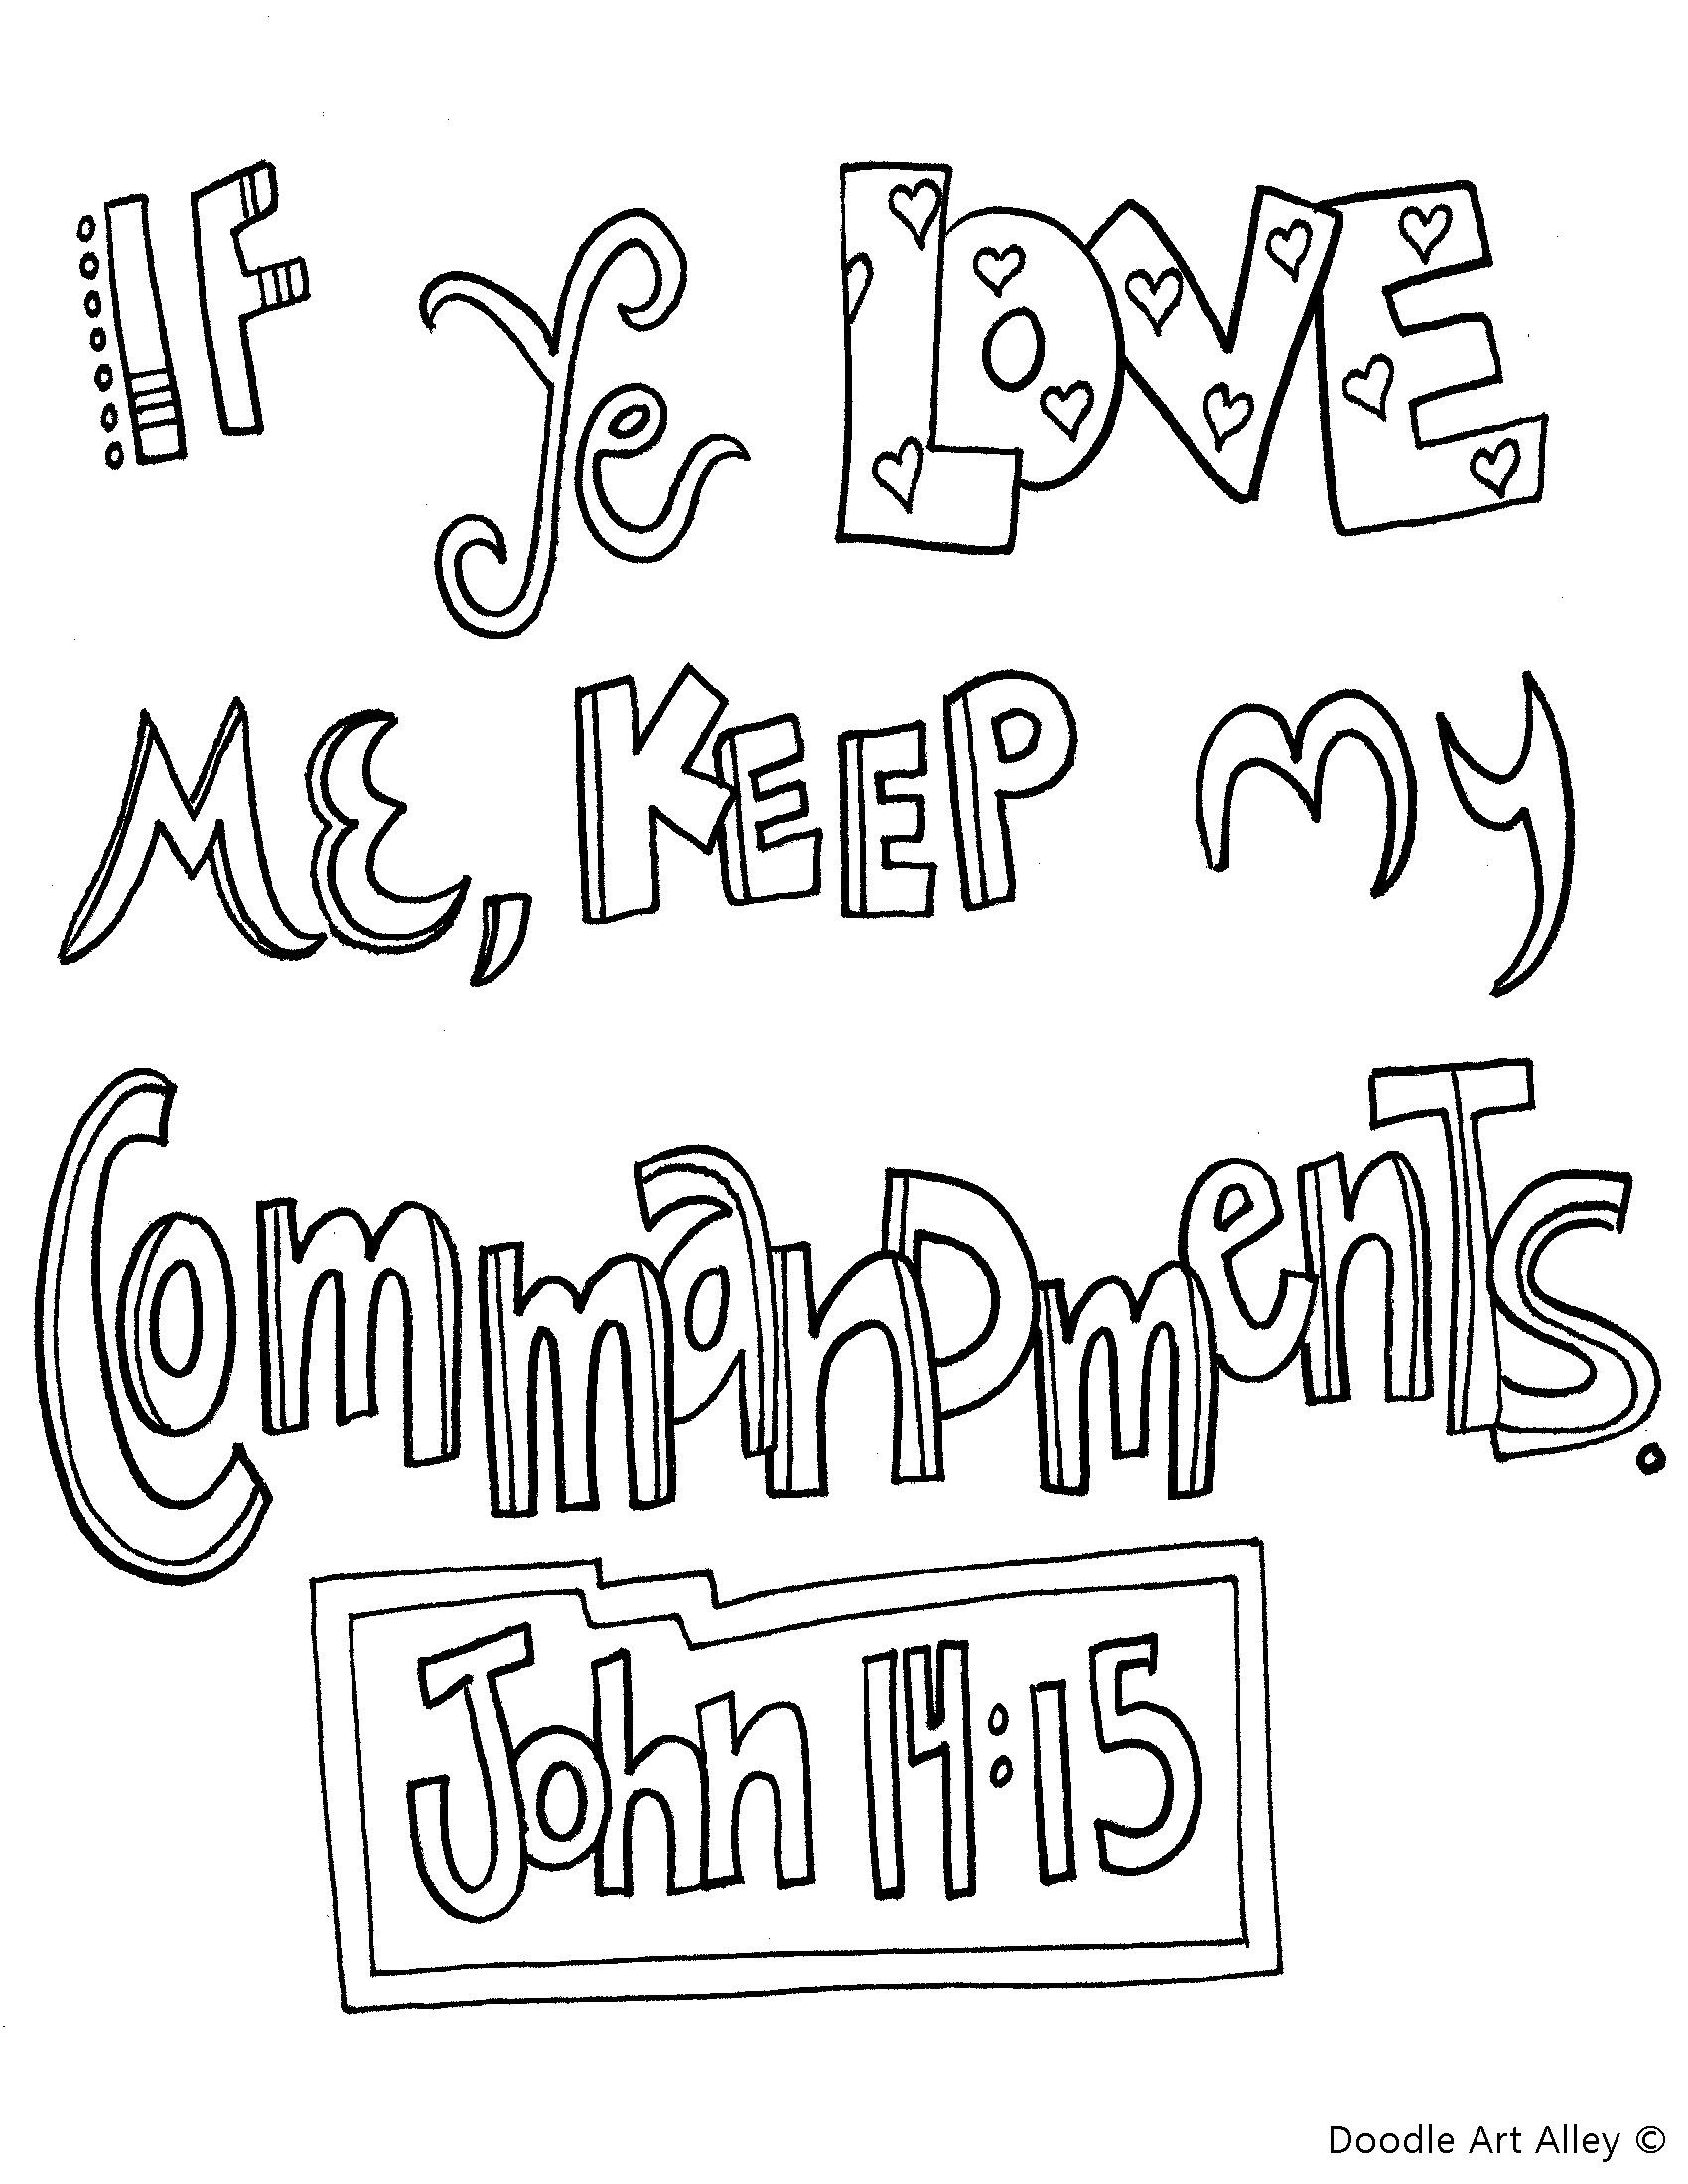 IF Ye LOVE
ME, KEEP MY
CommanDmenTs.
John 14:15
Doodle Art Alley ©